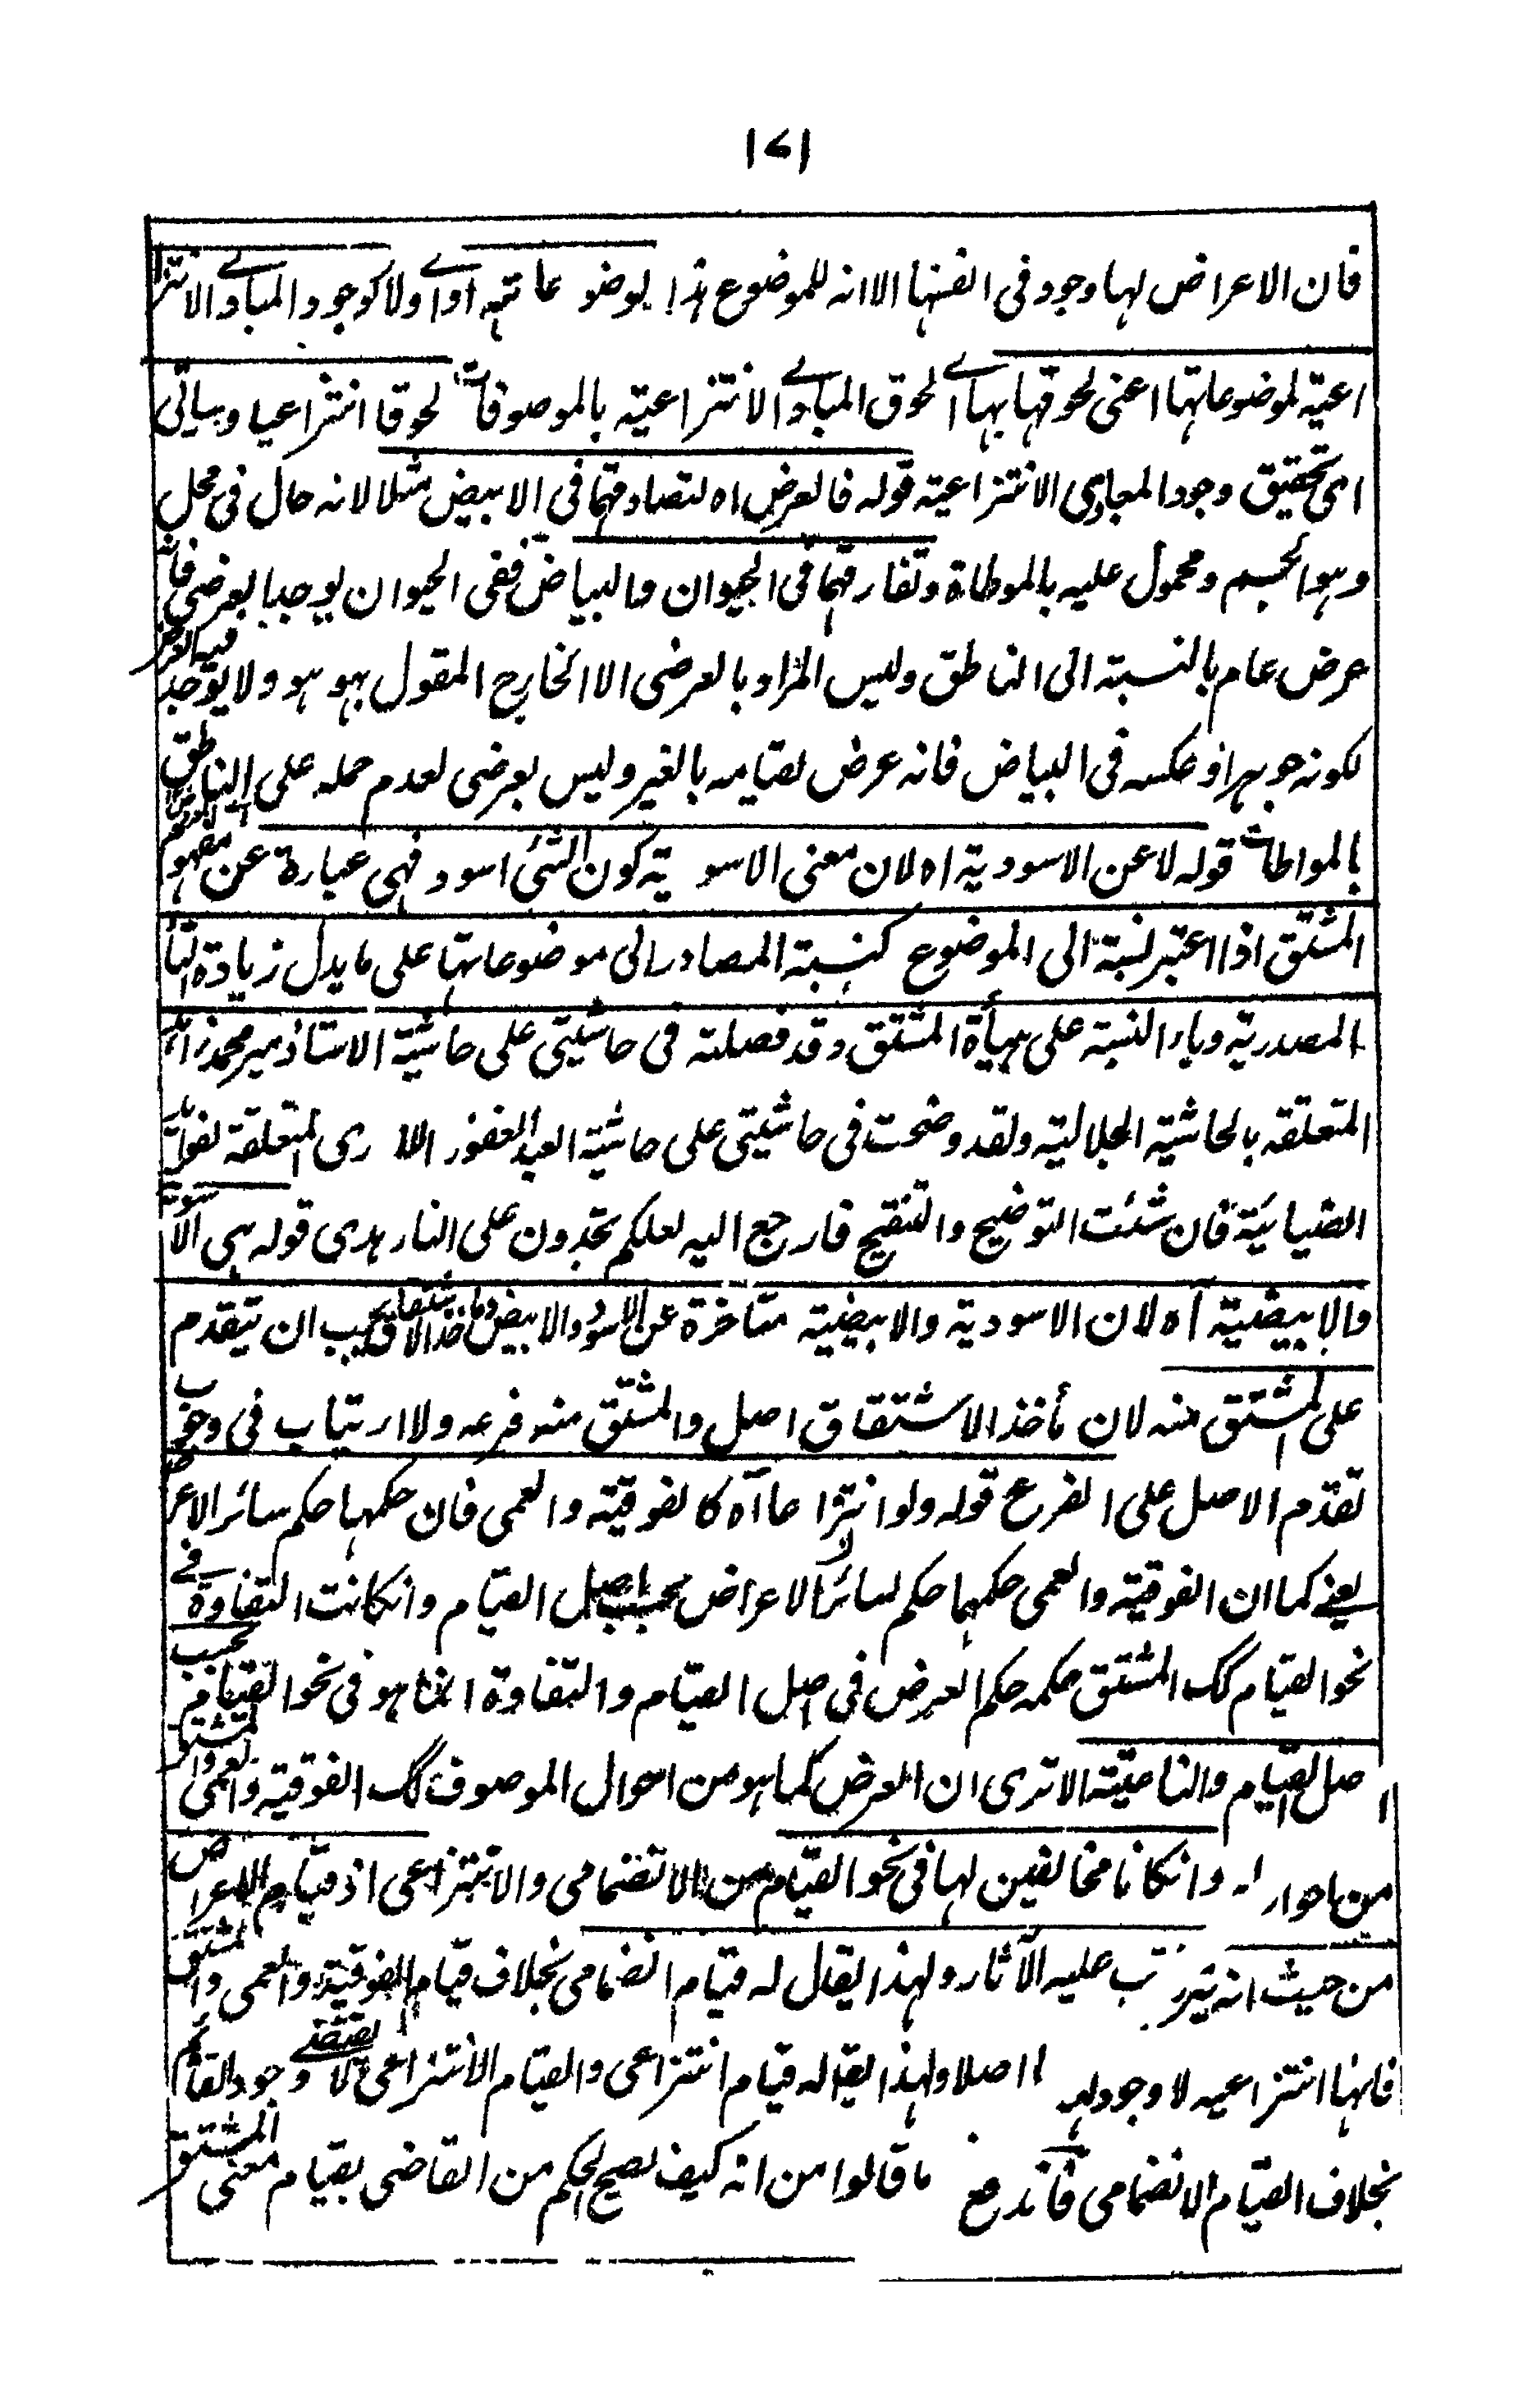 ١٧١
فان الاعراض لها وجود فى انفسها الا انه للموضوع هذا لموضوعاتها اى اولا كوجود المبادى الانتز
اعية لموضوعاتها اعنى لحوقها بها اى لحوق المبادى الانتزاعية بالموصوفات لحوقا انتزاعيا وسياتى
اى تحقيق وجود المبادى الانتزاعية قوله فالعرض اه لتصادقهما فى الابيض مثلا لانه حال فى محل
وهو الجسم ومحمول عليه بالمواطاة وتفارقهما فى الحيوان والبياض ففى الحيوان يوجد العرضى فانه
عرض عام بالنسبة الى الناطق وليس المراد بالعرضى الا الخارج المقول بهو هو ولا يوجد فيه العرض
لكونه جوهرا وعكسه فى البياض فانه عرض لقيامه بالغير وليس بعرضى لعدم حمله على الناطق
بالمواطات قوله لا عن الاسودية اه لان معنى الاسو ية كون الشئ اسود فهى عبارة عن مفهوم
المشتق اذا اعتبر نسبة الى الموضوع كنسبة المصادر الى موضوعاتها على ما يدل زيادة التاء
المصدرية وياء النسبة على هيأة المشتق وقد فصلته فى حاشيتى على حاشية الاستاذ مير محمد زاهد
المتعلقة بالحاشية الجلالية ولقد وضحت فى حاشيتى على حاشية العبد الغفور اللا رى المتعلقة لفوائد
الضيائية فان شئت التوضيح والتنقيح فارجع اليه لعلكم تجدون على النار هدى قوله هى الاسودية
والابيضية اه لان الاسودية والابيضية متاخرة عن الاسود والابيض وماخذ الاشتقاق يجب ان يتقدم
على المشتق منه لان مأخذ الاشتقاق اصل والمشتق منه فرعه ولا ارتياب فى وجوب
تقدم الاصل على الفرع قوله ولو انتزاعا آه كالفوقية والعمى فان حكمها حكم سائر الاعراض
يعنى كما ان الفوقية والعمى حكمهما حكم لسائر الاعراض بحسب اصل القيام وانكانت التفاوة فى
نحو القيام كك المشتق حكمه حكم العرض فى اصل القيام والتفاوة انما هو فى نحو القيام بحسب
اصل القيام والناعتية الا ترى ان العرض كما هو من احوال الموصوف كك الفوقية والعمى والمشتق
من احوار له وانكانا مخالفين لها فى نحو القيام من الانضمامى والانتزاعى اذ قيام الاعراض
من حيث انه يترتب عليه الآثار ولهذا يقال له قيام انضمامى بخلاف قيام الفوقية والعمى والمشتق
فانها انتزاعيه لا وجود لها اصلا ولهذا يقال له قيام انتزاعى والقيام الانتزاعى لا يقتضى وجود القائم
بخلاف القيام الانضمامى فاندفع ما قالوا من انه كيف يصح الحكم من القاضى بقيام معنى المشتق